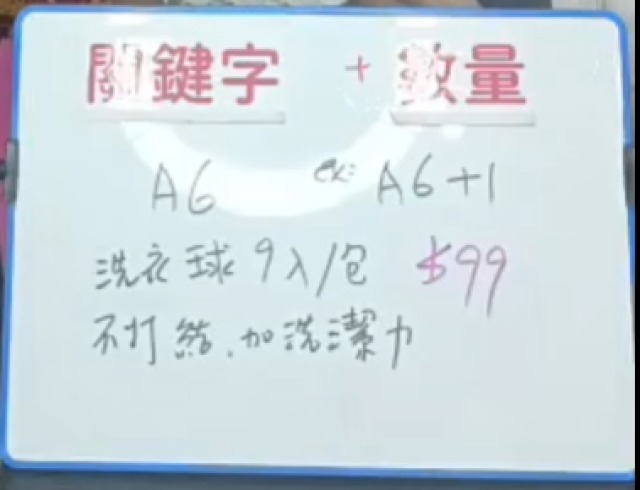 關鍵字 + 數量
A6 ex: A6+1
洗衣球 9入/包 $99
不打結、加洗潔力